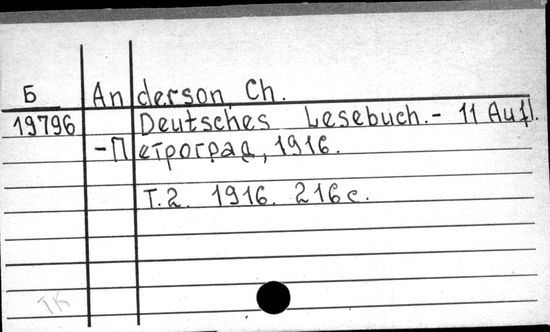 Б Anderson, Ch.
19796 Deutsches Lesebuch.- 11 Aufl.
-Петроград, 1916.
Т.2. 1916. 216 с.
ТК